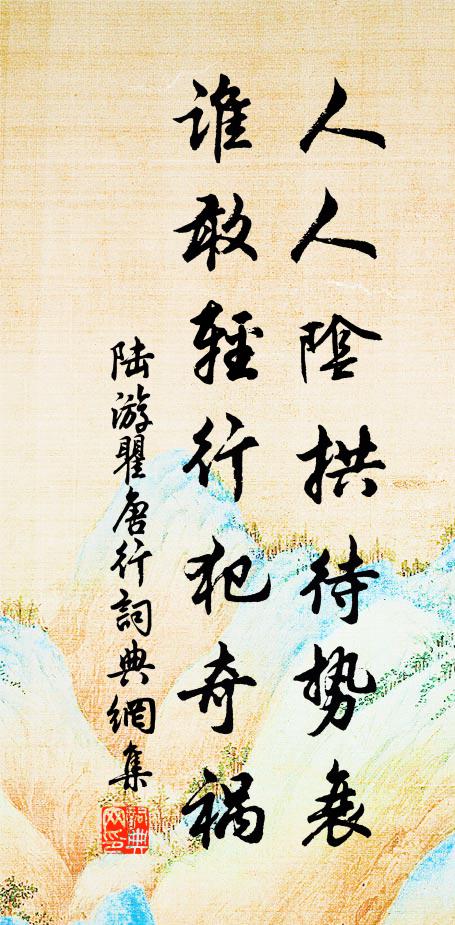 人人陰拱待势衰
誰敢輕行犯奇禍
陆游瞿唐行詞典網集
詞典